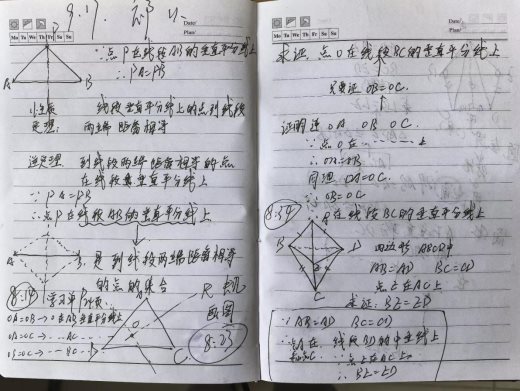 8.17.
Date/
Mo Tu We Th Fr Sa Su
Plan/
P
∵点P在线段AB的垂直平分线上
∴PA=PB
A B
性质
定理:
线段垂直平分线上的点到线段
两端距离相等
逆定理
到线段两端距离相等的点
在线段垂直平分线上
∵PA=PB
∴点P在线段AB的垂直平分线上
到线段两端距离相等
的点的集合
8:19
学习单
OA=OB→O在AB垂直平分线上
OA=OC→ … AC …
OB=OC→ … BC …
C
画图
8:23
Date/
Mo Tu We Th Fr Sa Su
Plan/
求证 点O在线段BC的垂直平分线上
OB=OC
证明 连OA OB OC.
∵点O在 … 上
∴OA=OB
同理 OA=OC.
∴OB=OC
在线段BC的垂直平分线上
8:34
A
B D
E
C
四边形ABCD中
AB=AD BC=CD
点E在AC上
求证 BE=ED
∵AB=AD BC=CD
线段BD的中垂线上
点E在AC上
∴BE=ED